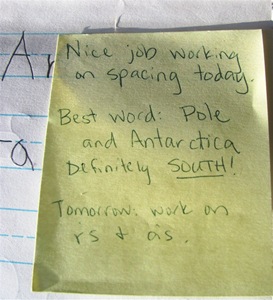 Ar
Nice job working
on spacing today.
Best word: Pole
and Antarctica
Definitely SOUTH!
Tomorrow: work on
rs & as.
a